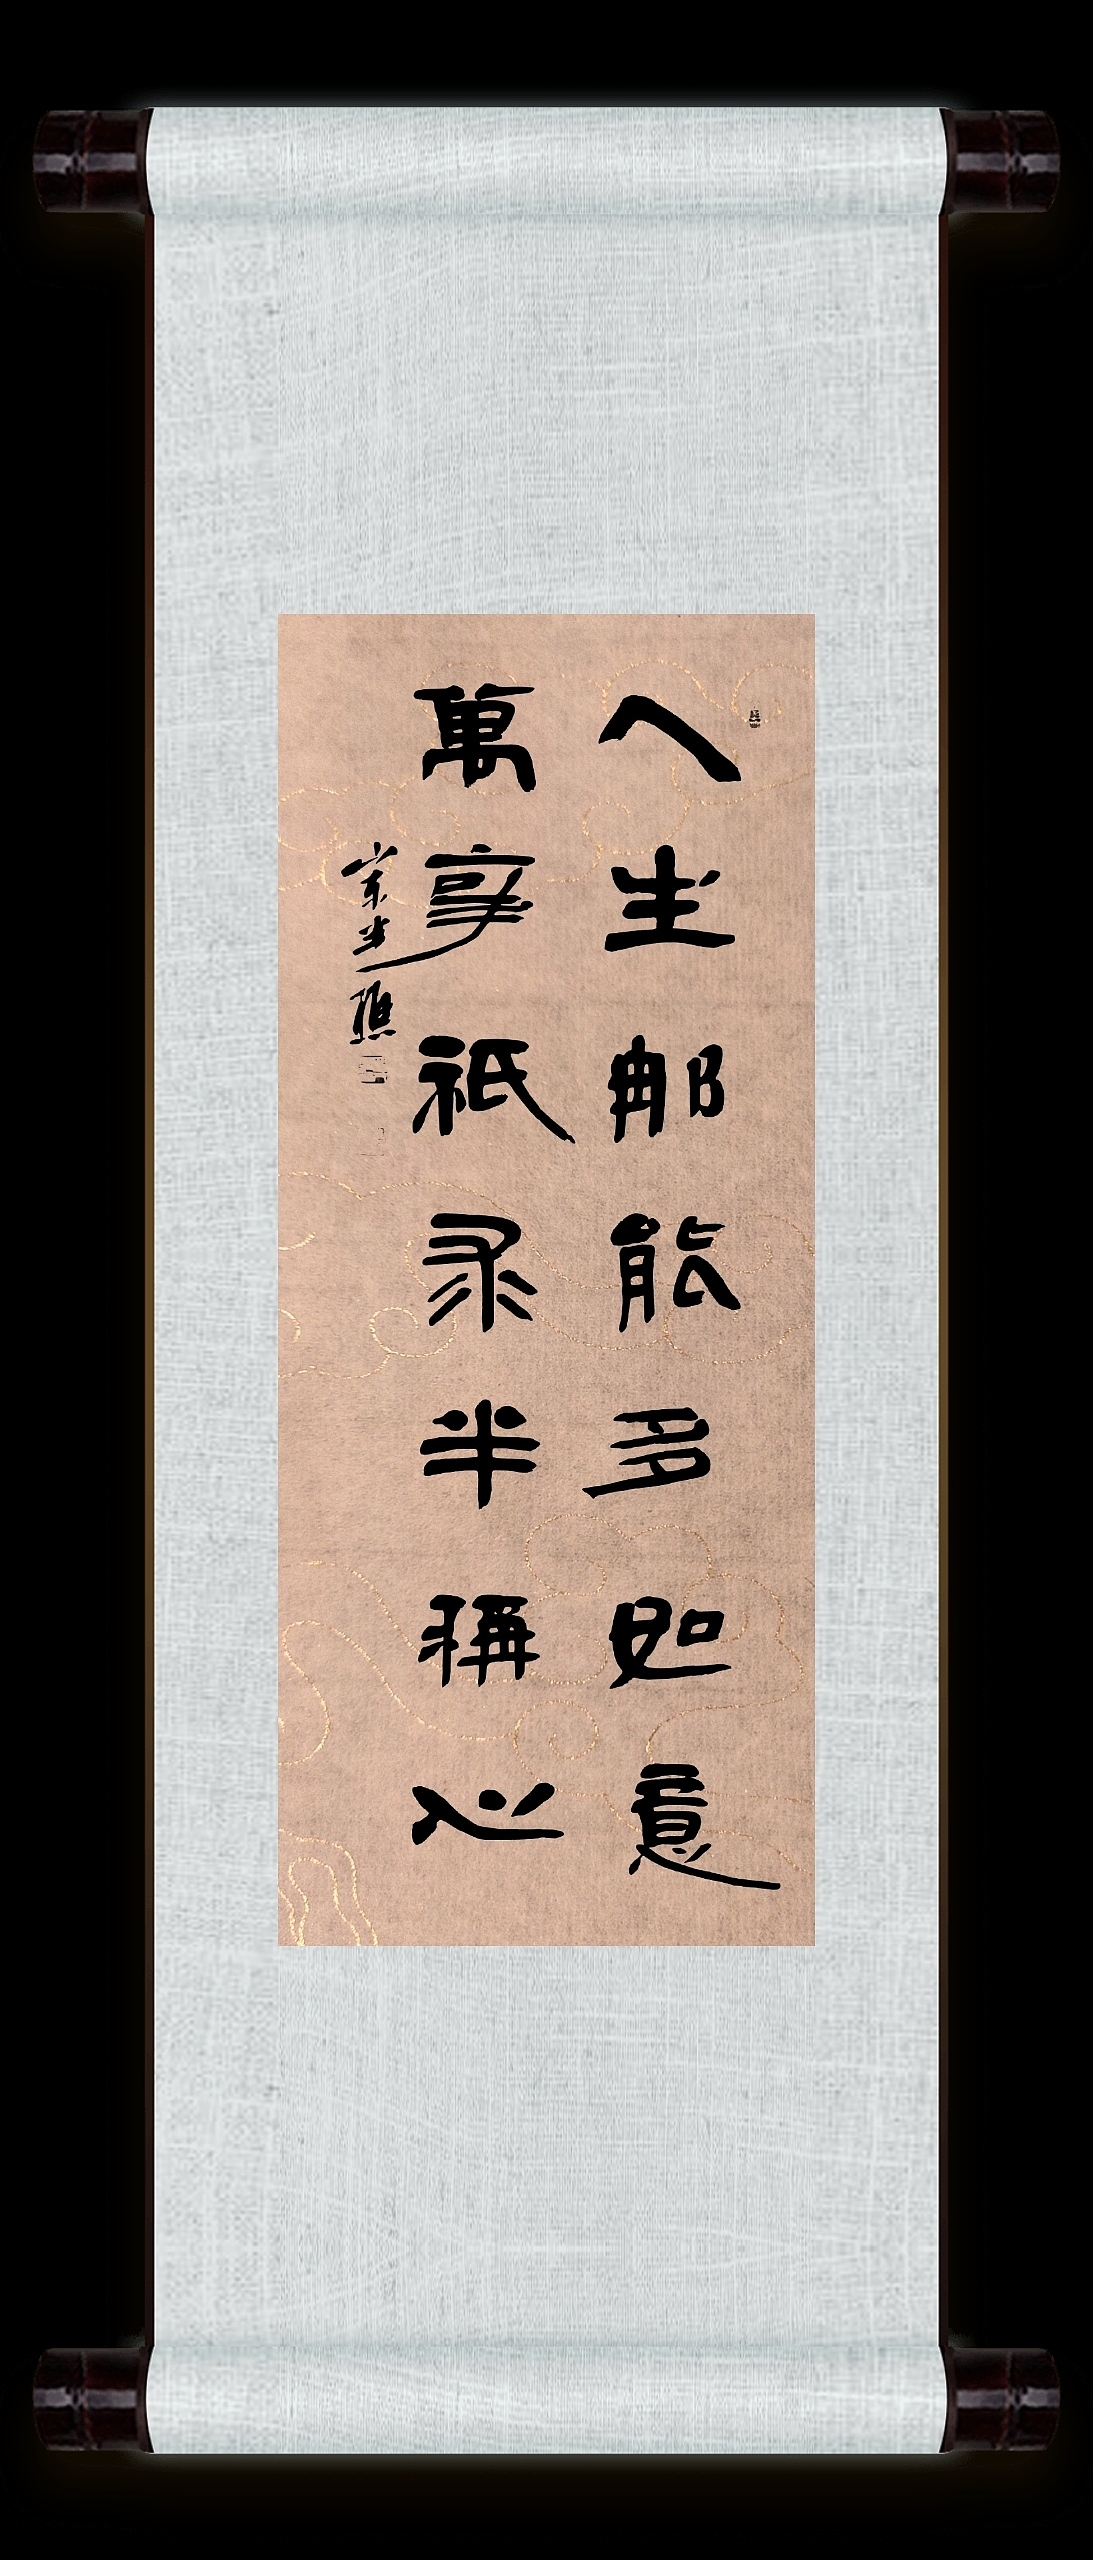 人生那能多如意
萬事祇求半稱心